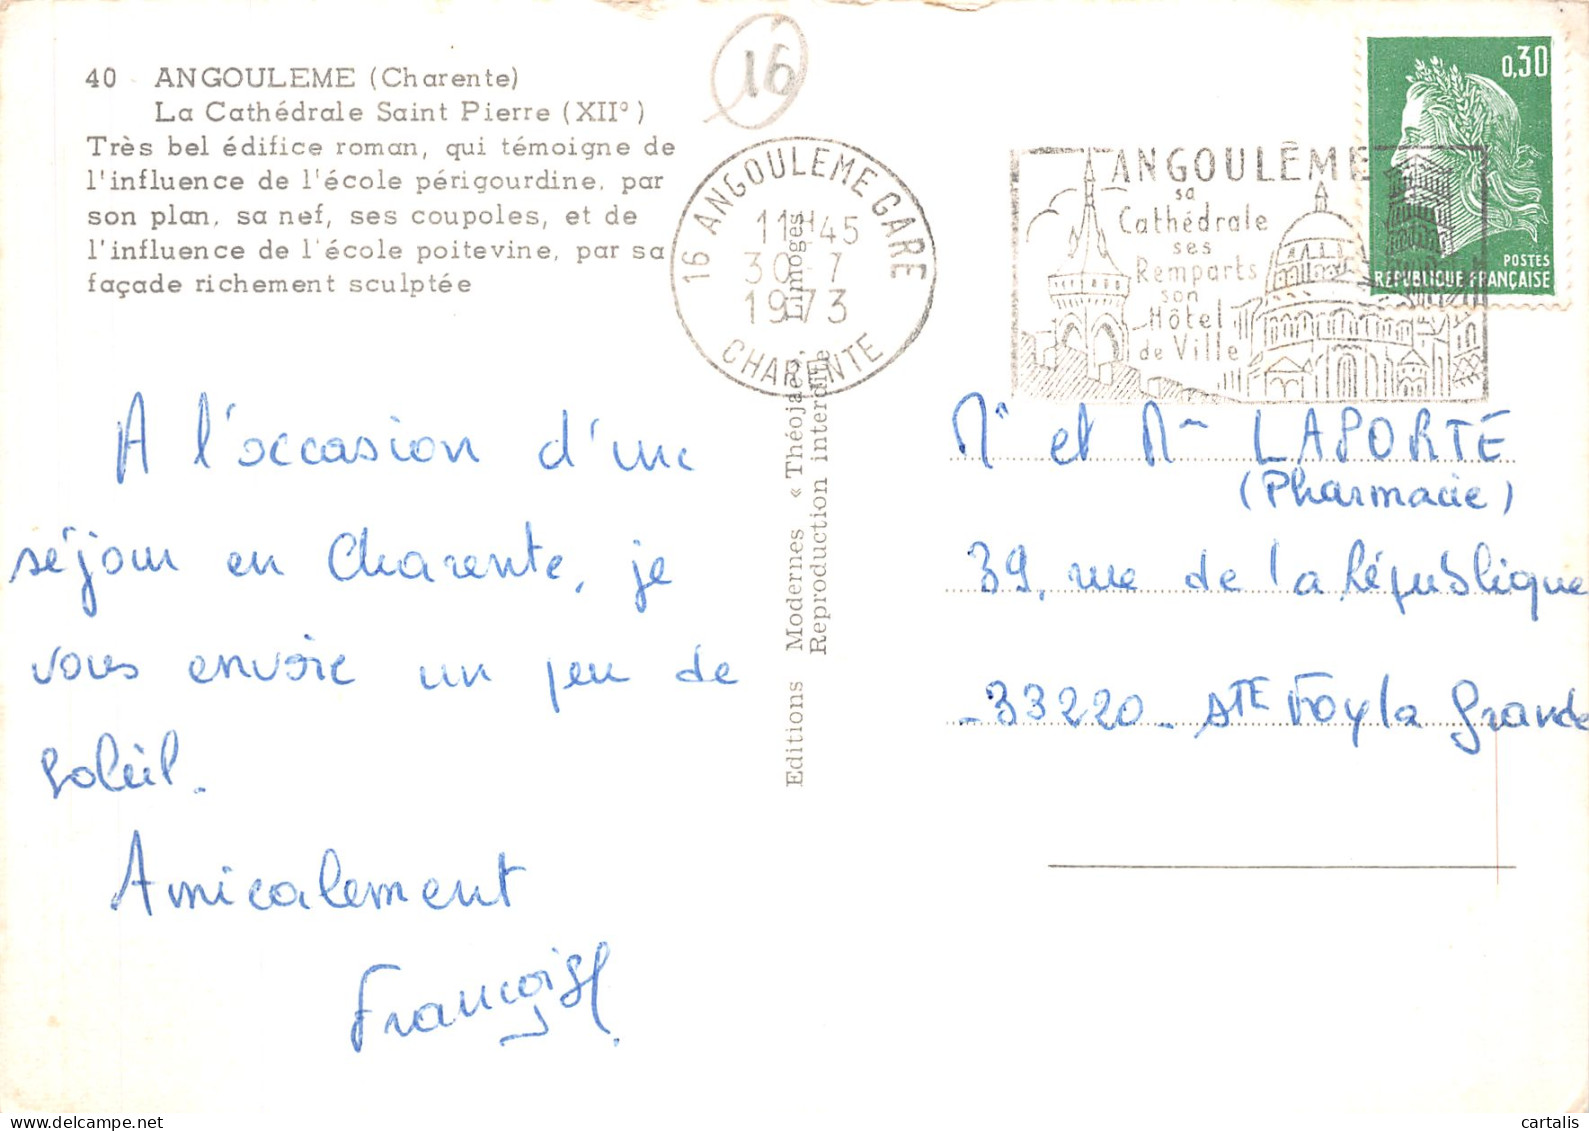 16
40 ANGOULEME (Charente)
La Cathédrale Saint Pierre (XIIº)
Très bel édifice roman, qui témoigne de
l'influence de l'école périgourdine, par
son plan, sa nef, ses coupoles, et de
l'influence de l'école poitevine, par sa
façade richement sculptée
16 ANGOULEME GARE
11H45
30-7
1973
CHARENTE
ANGOULÊME
sa
Cathédrale
ses
Remparts
son
Hôtel
de Ville
0,30
POSTES
REPUBLIQUE FRANÇAISE
A l'occasion d'un
séjour en Charente, je
vous envoie un peu de
soleil.
Amicalement
Françoise
Editions Modernes « Théojac », Limoges
Reproduction interdite
Mr et Mme LAPORTE
(Pharmacie)
39, rue de la République
-33220- STE Foy la Grande
cartalis
delcampe.net